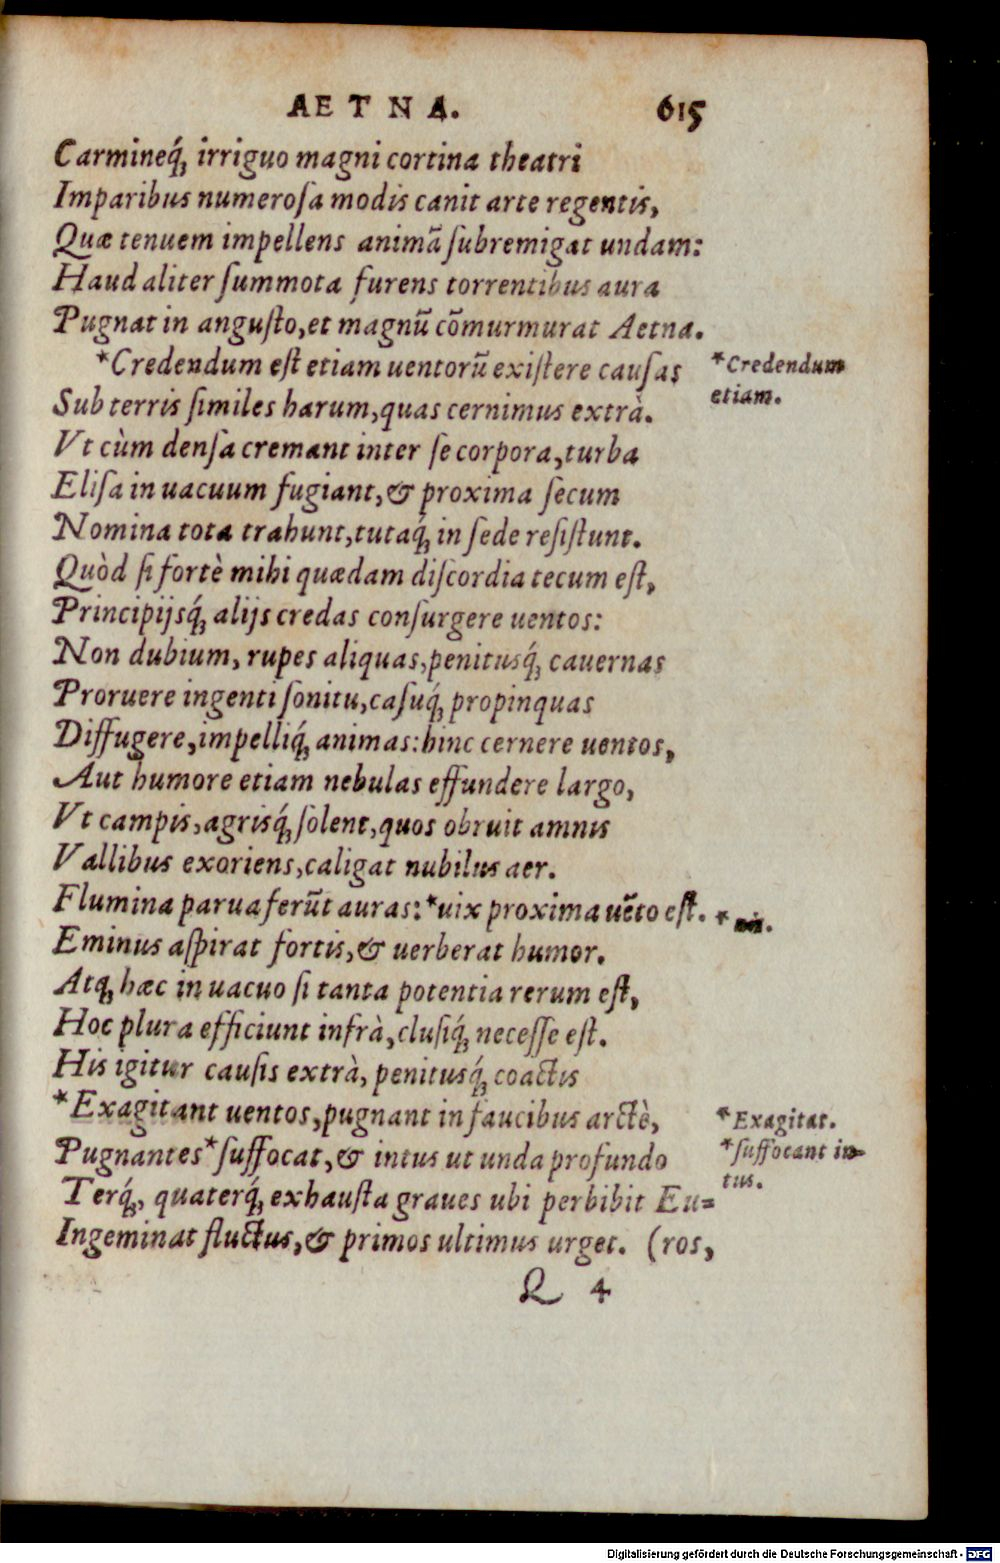 AETNA. 615
Carmineq́; irriguo magni cortina theatri
Imparibus numeroſa modis canit arte regentis,
Quæ tenuem impellens animā ſubremigat undam:
Haud aliter ſummota furens torrentibus aura
Pugnat in anguſto, et magnū cōmurmurat Aetna.
*Credendum eſt etiam uentorū exiſtere cauſas *Credendum
etiam.
Sub terris ſimiles harum, quas cernimus extrà.
Vt cùm denſa cremant inter ſe corpora, turba
Eliſa in uacuum fugiant, & proxima ſecum
Nomina tota trahunt, tutaq́; in ſede reſiſtunt.
Quòd ſi fortè mihi quædam diſcordia tecum eſt,
Principijsq́; alijs credas conſurgere uentos:
Non dubium, rupes aliquas, penitusq́; cauernas
Proruere ingenti ſonitu, caſuq́; propinquas
Diffugere, impelliq́; animas: hinc cernere uentos,
Aut humore etiam nebulas effundere largo,
Vt campis, agrisq́; ſolent, quos obruit amnis
Vallibus exoriens, caligat nubilus aer.
Flumina parua ferūt auras: *uix proxima uēto eſt. *
Eminus aſpirat fortis, & uerberat humor.
Atq; hæc in uacuo ſi tanta potentia rerum eſt,
Hoc plura efficiunt infrà, cluſiq́; neceſſe eſt.
His igitur cauſis extrà, penitusq́; coactis
*Exagitant uentos, pugnant in faucibus arctè, *Exagitat.
Pugnantes *ſuffocat, & intus ut unda profundo *ſuffocant in=
tus.
Terq́;, quaterq́; exhauſta graues ubi perbibit Eu=
Ingeminat fluctus, & primos ultimus urget. (ros,
Q 4
Digitalisierung gefördert durch die Deutsche Forschungsgemeinschaft - DFG